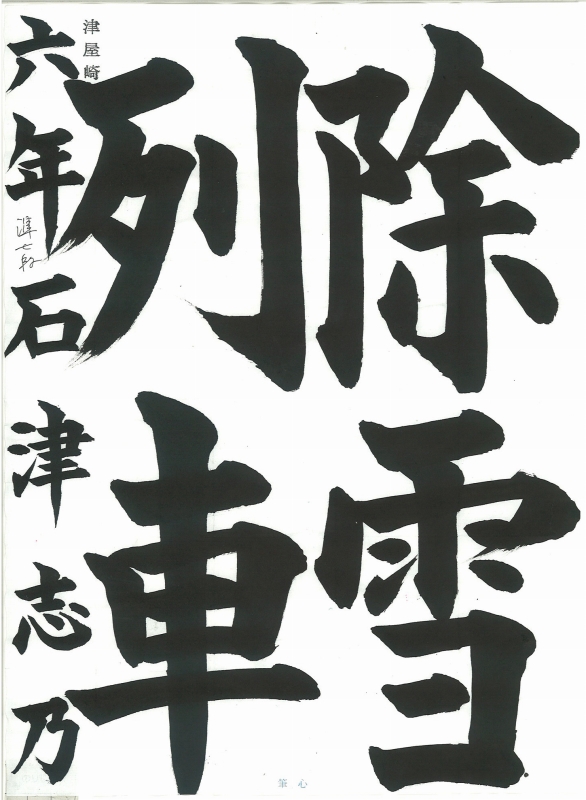 除雪
列車
津屋崎
六年 石津志乃
準七段
筆心